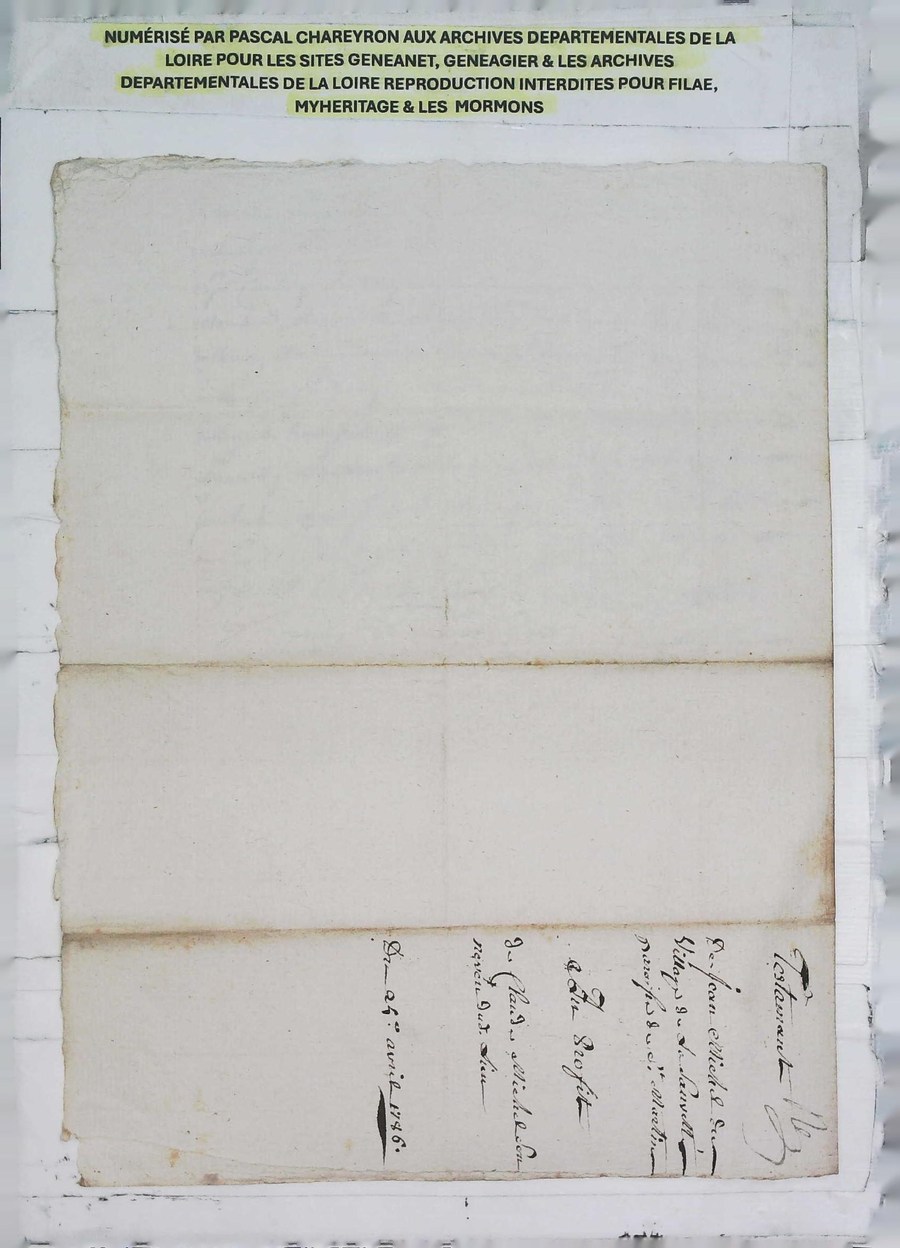 NUMÉRISÉ PAR PASCAL CHAREYRON AUX ARCHIVES DEPARTEMENTALES DE LA
LOIRE POUR LES SITES GENEANET, GENEAGIER & LES ARCHIVES
DEPARTEMENTALES DE LA LOIRE REPRODUCTION INTERDITES POUR FILAE,
MYHERITAGE & LES MORMONS
Testament
De Jean Michel du
Village de
paroisse de St Martin
Au Profit
de Claude Michel son
neveu dud. Lieu
Du avril 1786